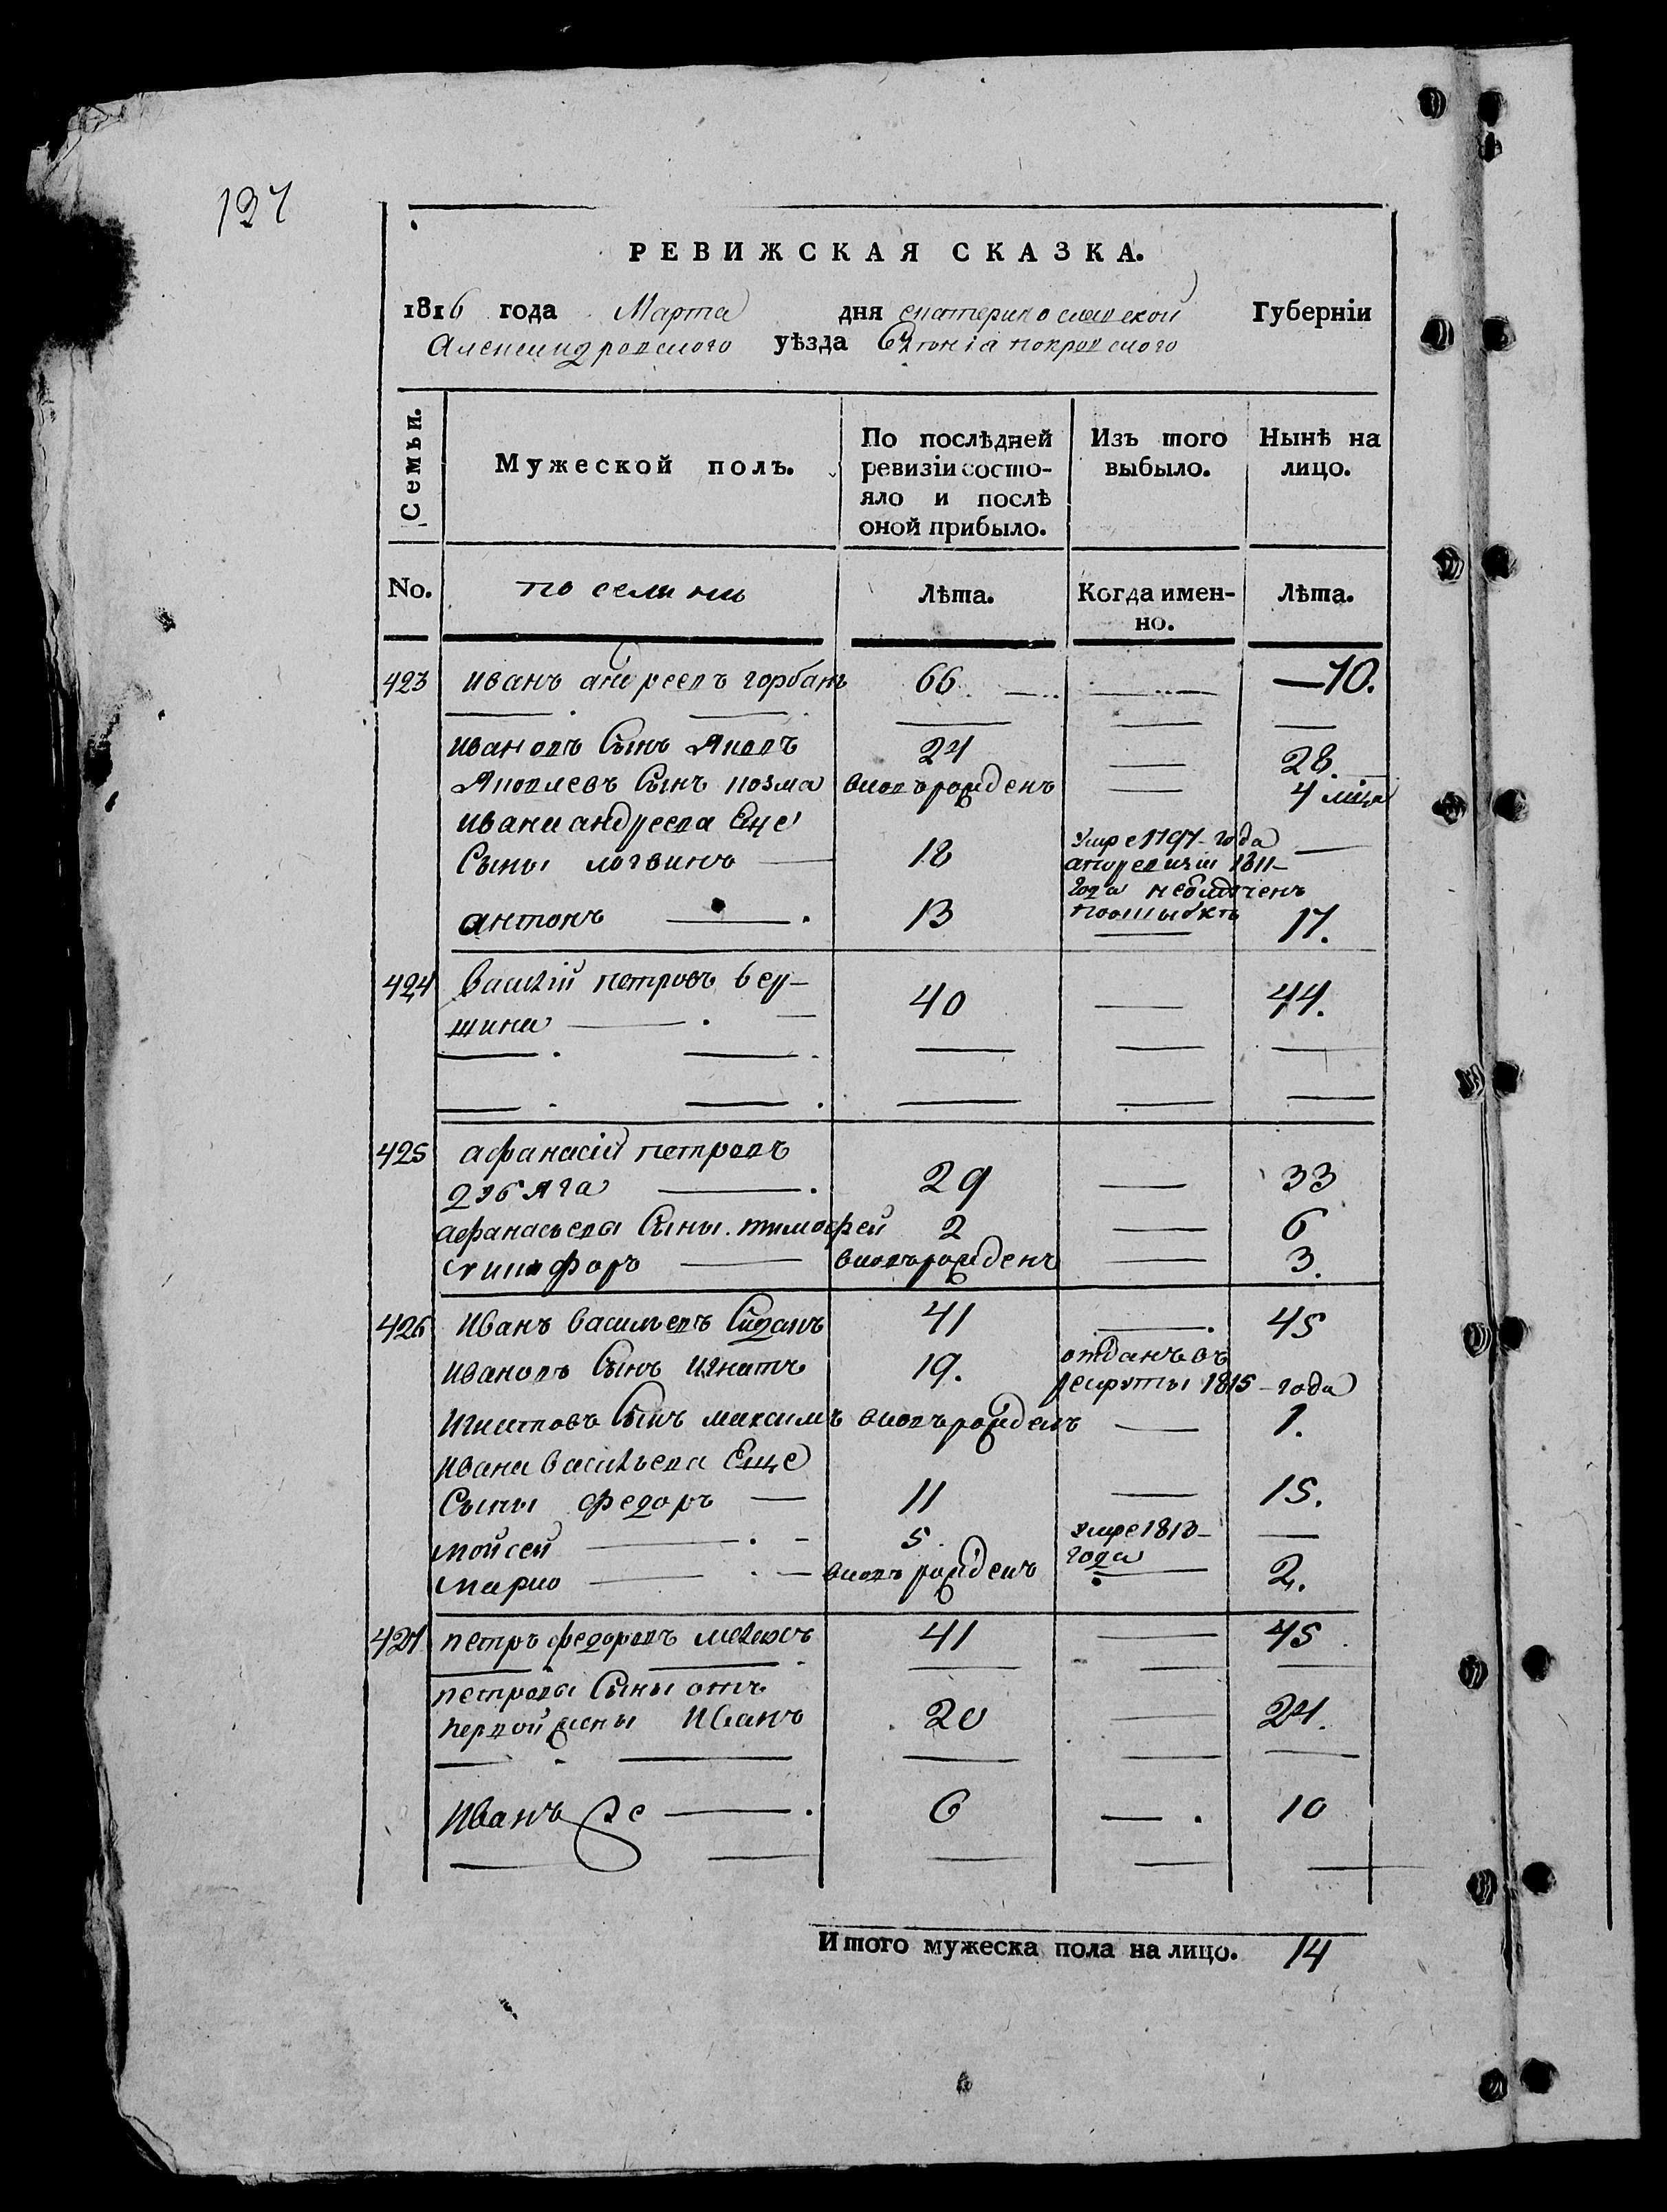 127
РЕВИЖСКАЯ СКАЗКА.
1816 года Марта дня екатеринославской Губерніи
Александровского уѣзда покровского
Семьи.
Мужеской полъ.
По послѣдней ревизіи состо-
яло и послѣ
оной прибыло.
Изъ того
выбыло.
Нынѣ на
лицо.
No.
Лѣта.
Когда имен-
но.
Лѣта.
423 иванъ андреевъ горбань 66 70.
ивановъ Сынъ Яковъ 24 28.
Яковлевъ Сынъ козма вновъ рожденъ 4 мца
ивана андреева Еще
Сыны логвинъ 18 умре 1797 года
а по ревизіи 1811
года
по ошибкѣ
антонъ 13 17.
424 василій петровъ вер-
щина 40 44.
425 афанасій петровъ
дзбяга 29 33
афанасьева Сыны. тимофей 2 6
никифоръ вновъ рожденъ 3.
426 Иванъ васильевъ 41 45
Ивановъ Сынъ игнатъ 19. отданъ въ
рекруты 1815 года
Игнатовъ Сынъ максимъ вновъ рожденъ 1.
Ивана васильева Еще
Сыны федоръ 11 15.
мойсей 5. умре 1813
года
марко вновъ рожденъ 2.
427 петръ федоровъ 41 45
петрова Сыны отъ
первой жены Иванъ 20 24.
Иванъ же 6 10
Итого мужеска пола на лицо. 14